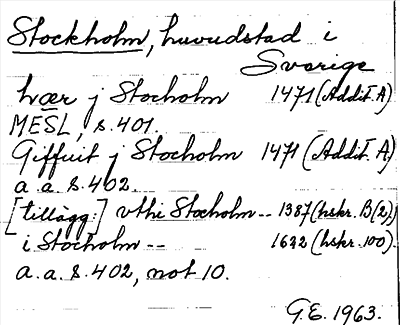 Stockholm, huvudstad i
Sverige
hvær j Stocholm 1471 (Addit. A)
MESL, s. 401.
Giffuit j Stocholm 1471 (Addit. A)
a. a. s. 402.
[tillägg:] vthi Stocholm -- 1387 (hskr. B (2))
i Stocholm -- 1632 (hskr. 100).
a. a. s. 402, not 10.
G.E. 1963.